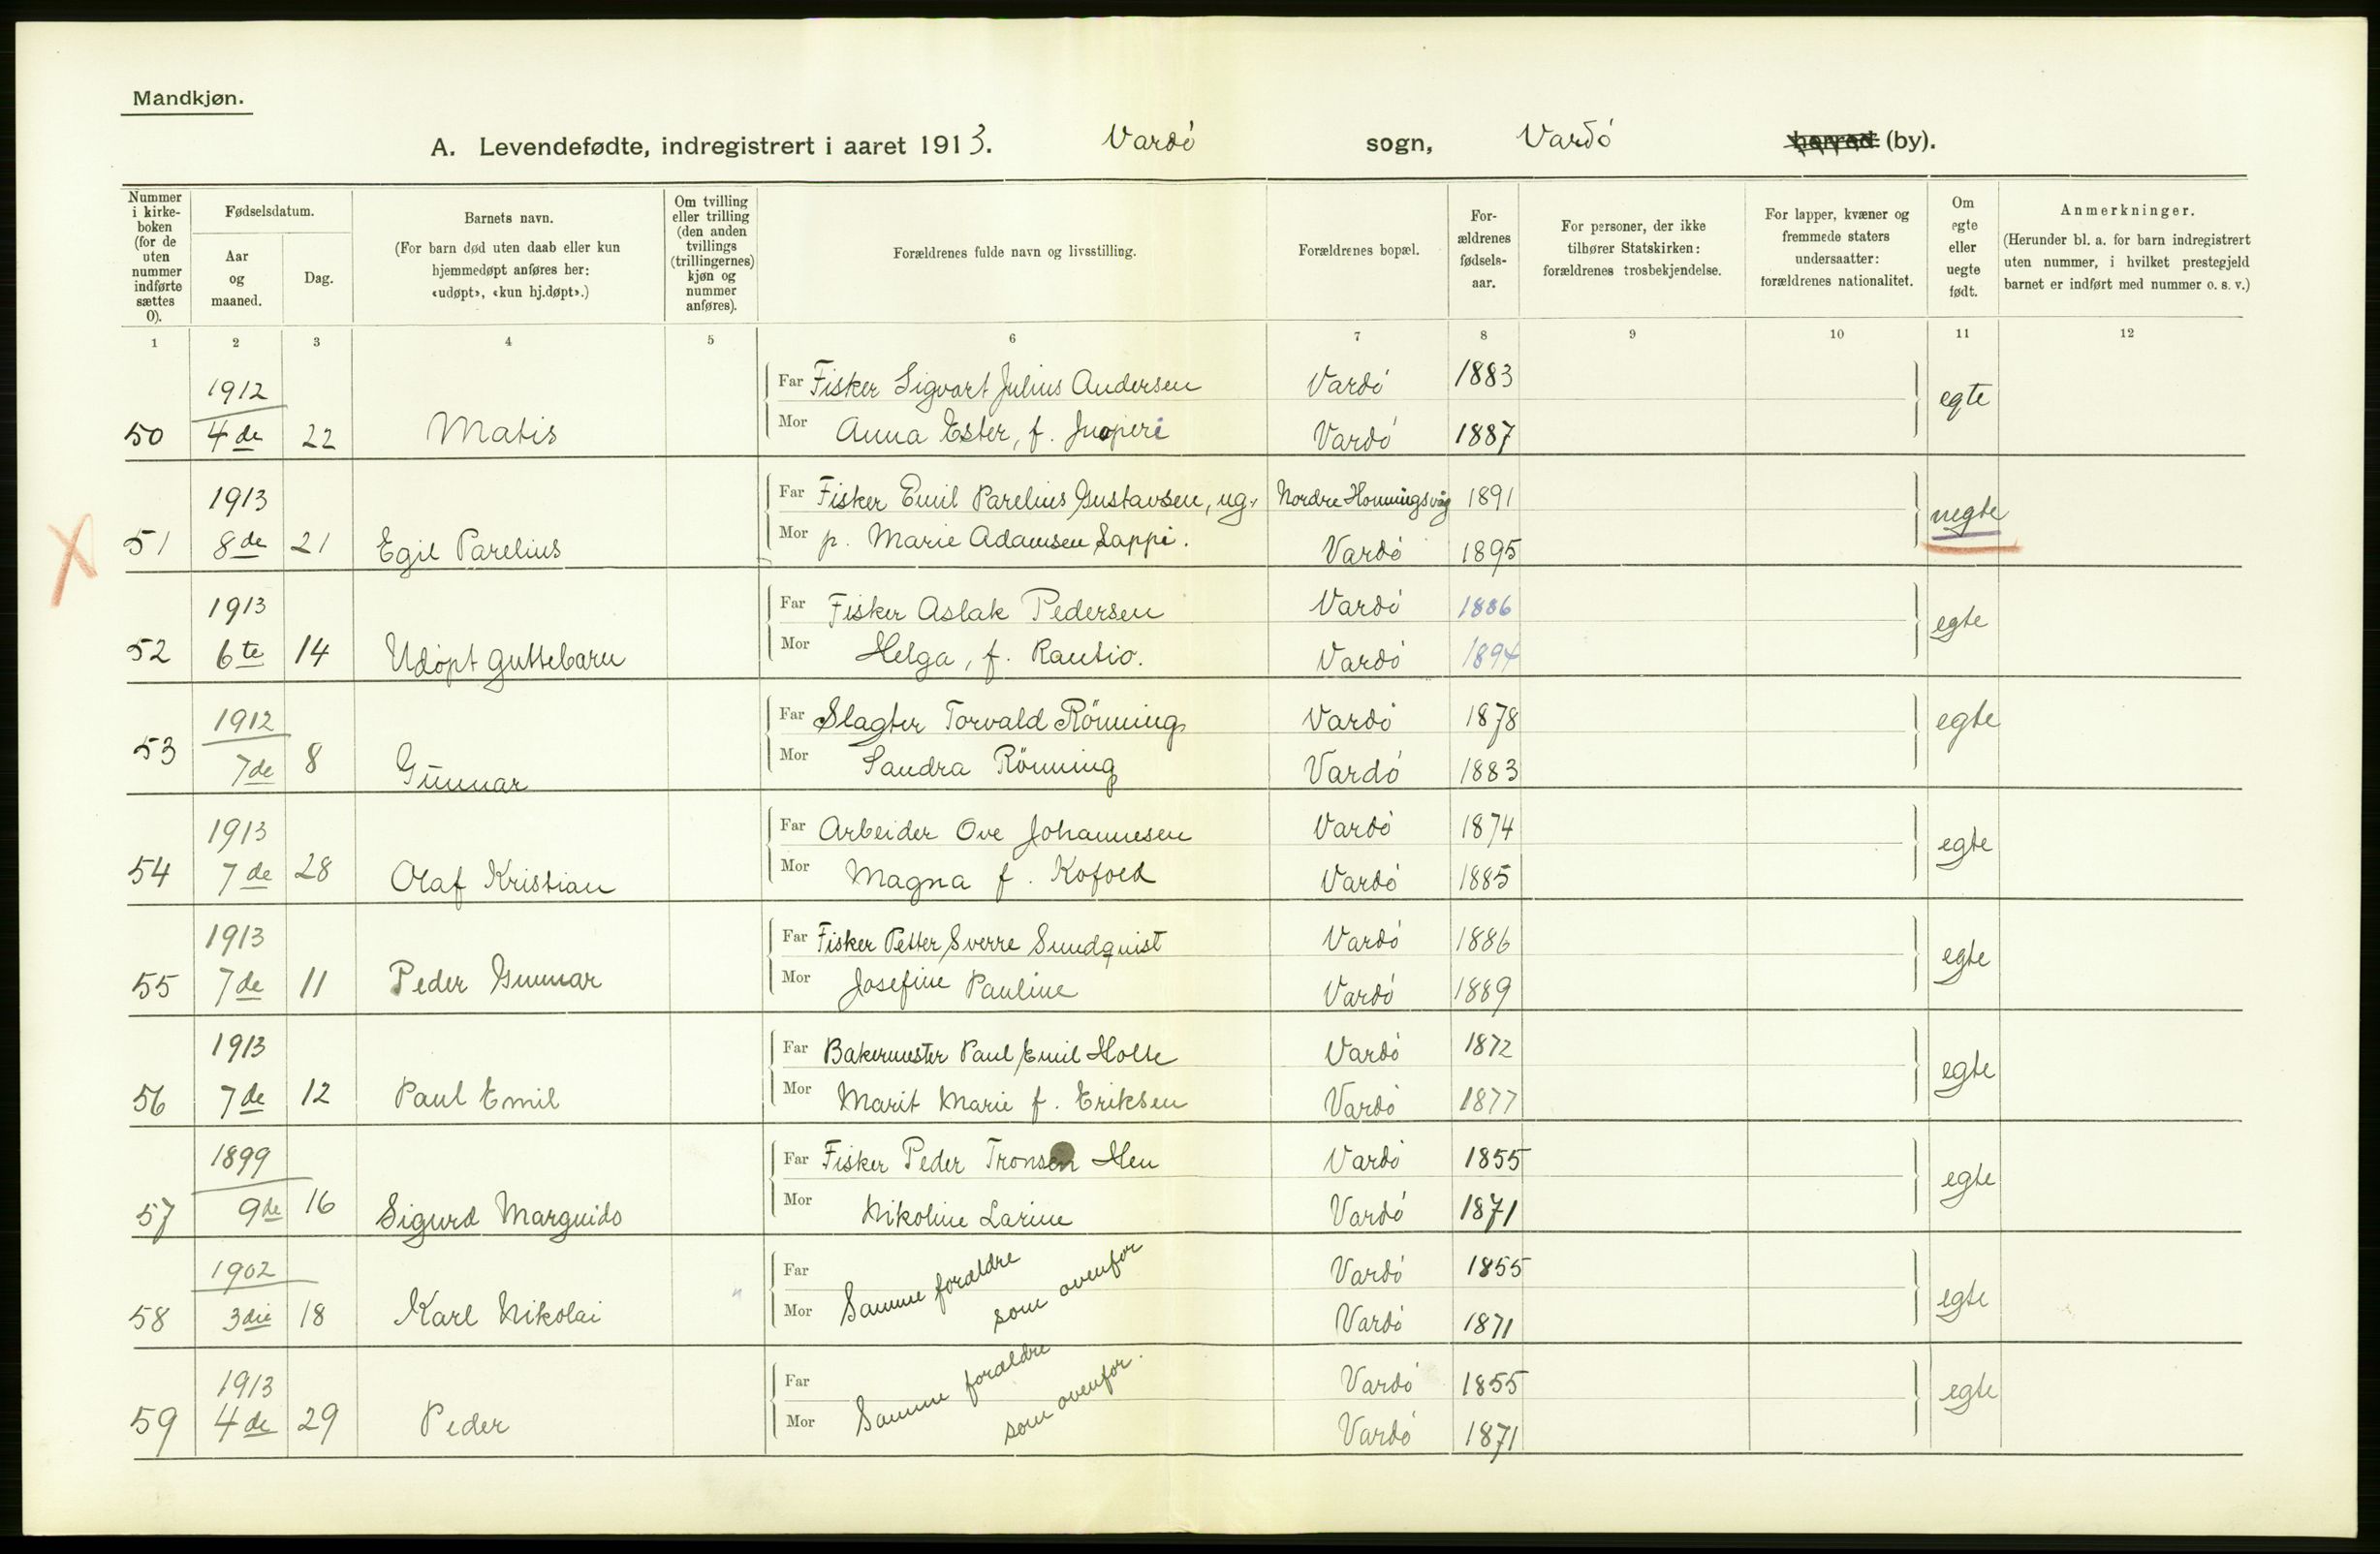 Mandkjøn.
A. Levendefødte, indregistrert i aaret 1913. Vardö sogn, Vardö herred (by).
Nummer i kirke-boken (for de uten nummer indførte sættes 0).
Fødselsdatum.
Aar og maaned.
Dag.
Barnets navn.
(For barn død uten daab eller kun hjemmedøpt anføres her: «udøpt», «kun hj.døpt».)
Om tvilling eller trilling (den anden tvillings (trillingernes) kjøn og nummer anføres).
Forældrenes fulde navn og livsstilling.
Forældrenes bopæl.
For-ældrenes fødsels-aar.
For personer, der ikke tilhører Statskirken: forældrenes trosbekjendelse.
For lapper, kvæner og fremmede staters undersaatter: forældrenes nationalitet.
Om egte eller uegte født.
Anmerkninger.
(Herunder bl. a. for barn indregistrert uten nummer, i hvilket prestegjeld barnet er indført med nummer o. s. v.)
1 2 3 4 5 6 7 8 9 10 11 12
1912 Far Fisker Sigvart Julius Andersen Vardö 1883 egte
50 4de 22 Matis Mor Anna Ester, f. Vardö 1887
1913 Far Fisker Emil Parelius Gustavsen, ug. Nordre Honningsvåg 1891 uegte
51 8de 21 Egil Parelius Mor p. Marie Adamsen Sappi. Vardö 1895
1913 Far Fisker Aslak Pedersen Vardö 1886 egte
52 6te 14 Udöpt guttebarn Mor Helga, f. Rautio. Vardö 1894
1912 Far Slagter Torvald Rönning Vardö 1878 egte
53 7de 8 Gunnar Mor Sandra Rönning Vardö 1883
1913 Far Arbeider Ove Johannesen Vardö 1874 egte
54 7de 28 Olaf Kristian Mor Magna f. Kofoed Vardö 1885
1913 Far Fisker Petter Sverre Sundquist Vardö 1886 egte
55 7de 11 Peder Gunnar Mor Josefine Pauline Vardö 1889
1913 Far Bakermester Paul Emil Holte Vardö 1872 egte
56 7de 12 Paul Emil Mor Marit Marie f. Eriksen Vardö 1877
1899 Far Fisker Peder Tronsen Hen Vardö 1855 egte
57 9de 16 Sigurd Marguido Mor Nikoline Larine Vardö 1871
1902 Far Samme forældre Vardö 1855 egte
58 3die 18 Karl Nikolai Mor som ovenfor Vardö 1871
1913 Far Samme forældre Vardö 1855 egte
59 4de 29 Peder Mor som ovenfor. Vardö 1871